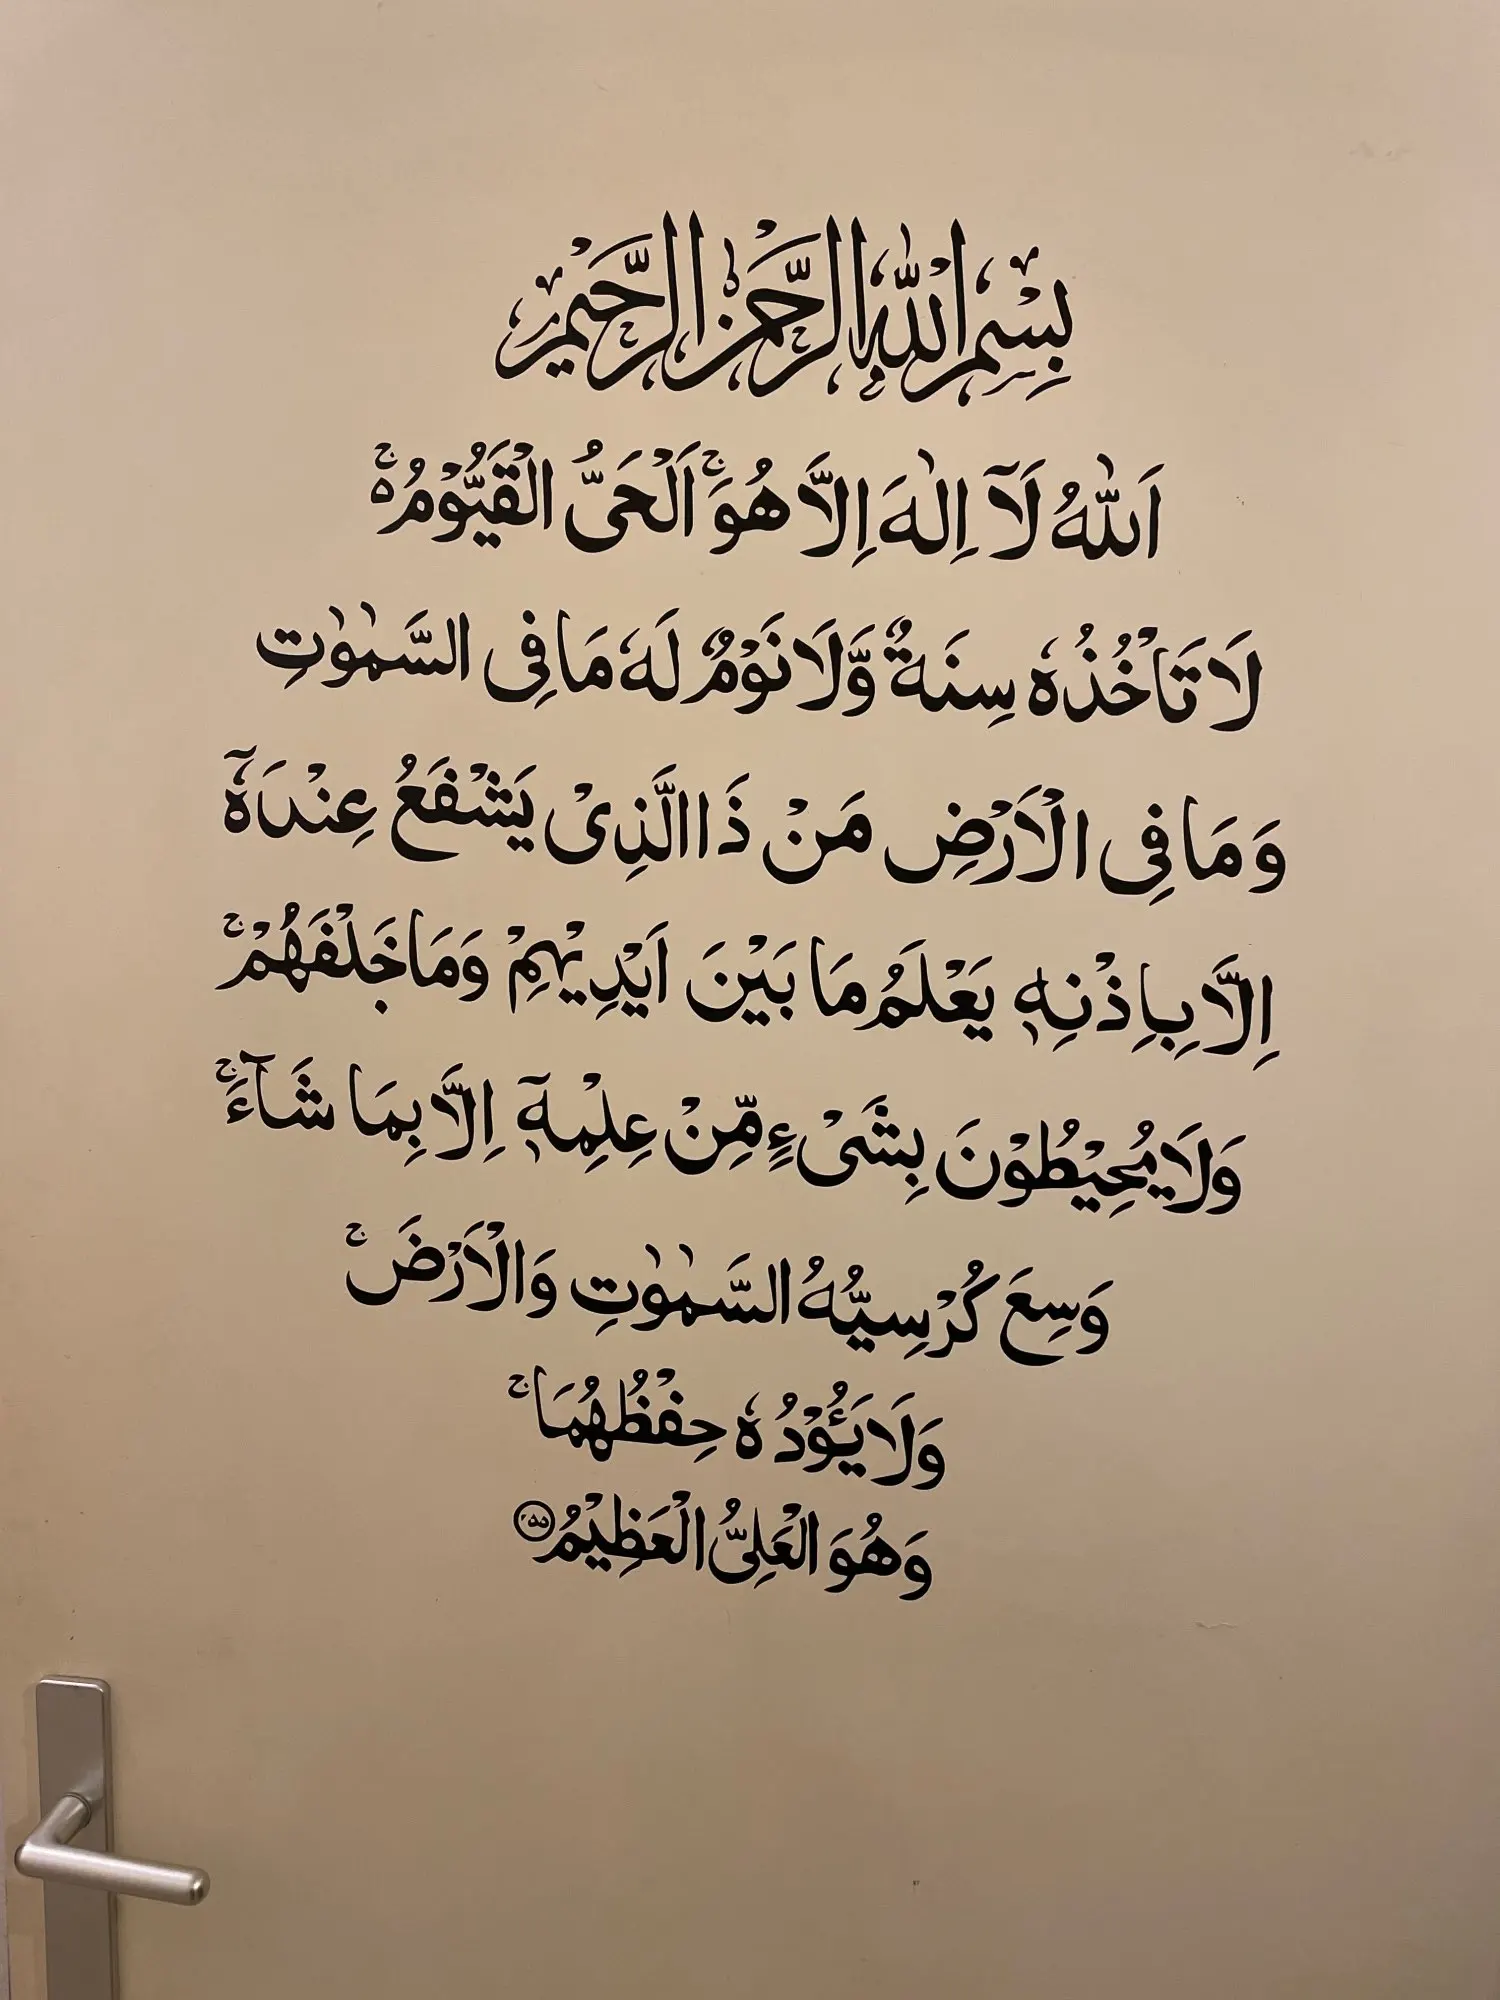 بِسْمِ اللّٰهِ الرَّحْمٰنِ الرَّحِيْمِ
اَللّٰهُ لَآ اِلٰهَ اِلَّا هُوَ ۚ اَلْحَيُّ الْقَيُّوْمُ ۚ
لَا تَاْخُذُهٗ سِنَةٌ وَّلَا نَوْمٌ لَهٗ مَا فِى السَّمٰوٰتِ
وَمَا فِى الْاَرْضِ مَنْ ذَا الَّذِىْ يَشْفَعُ عِنْدَهٗٓ
اِلَّا بِاِذْنِهٖ يَعْلَمُ مَا بَيْنَ اَيْدِيْهِمْ وَمَا خَلْفَهُمْ ۚ
وَلَا يُحِيْطُوْنَ بِشَىْءٍ مِّنْ عِلْمِهٖٓ اِلَّا بِمَا شَآءَ ۚ
وَسِعَ كُرْسِيُّهُ السَّمٰوٰتِ وَالْاَرْضَ ۚ
وَلَا يَئُوْدُهٗ حِفْظُهُمَا ۚ
وَهُوَ الْعَلِىُّ الْعَظِيْمُ ۲۵۵